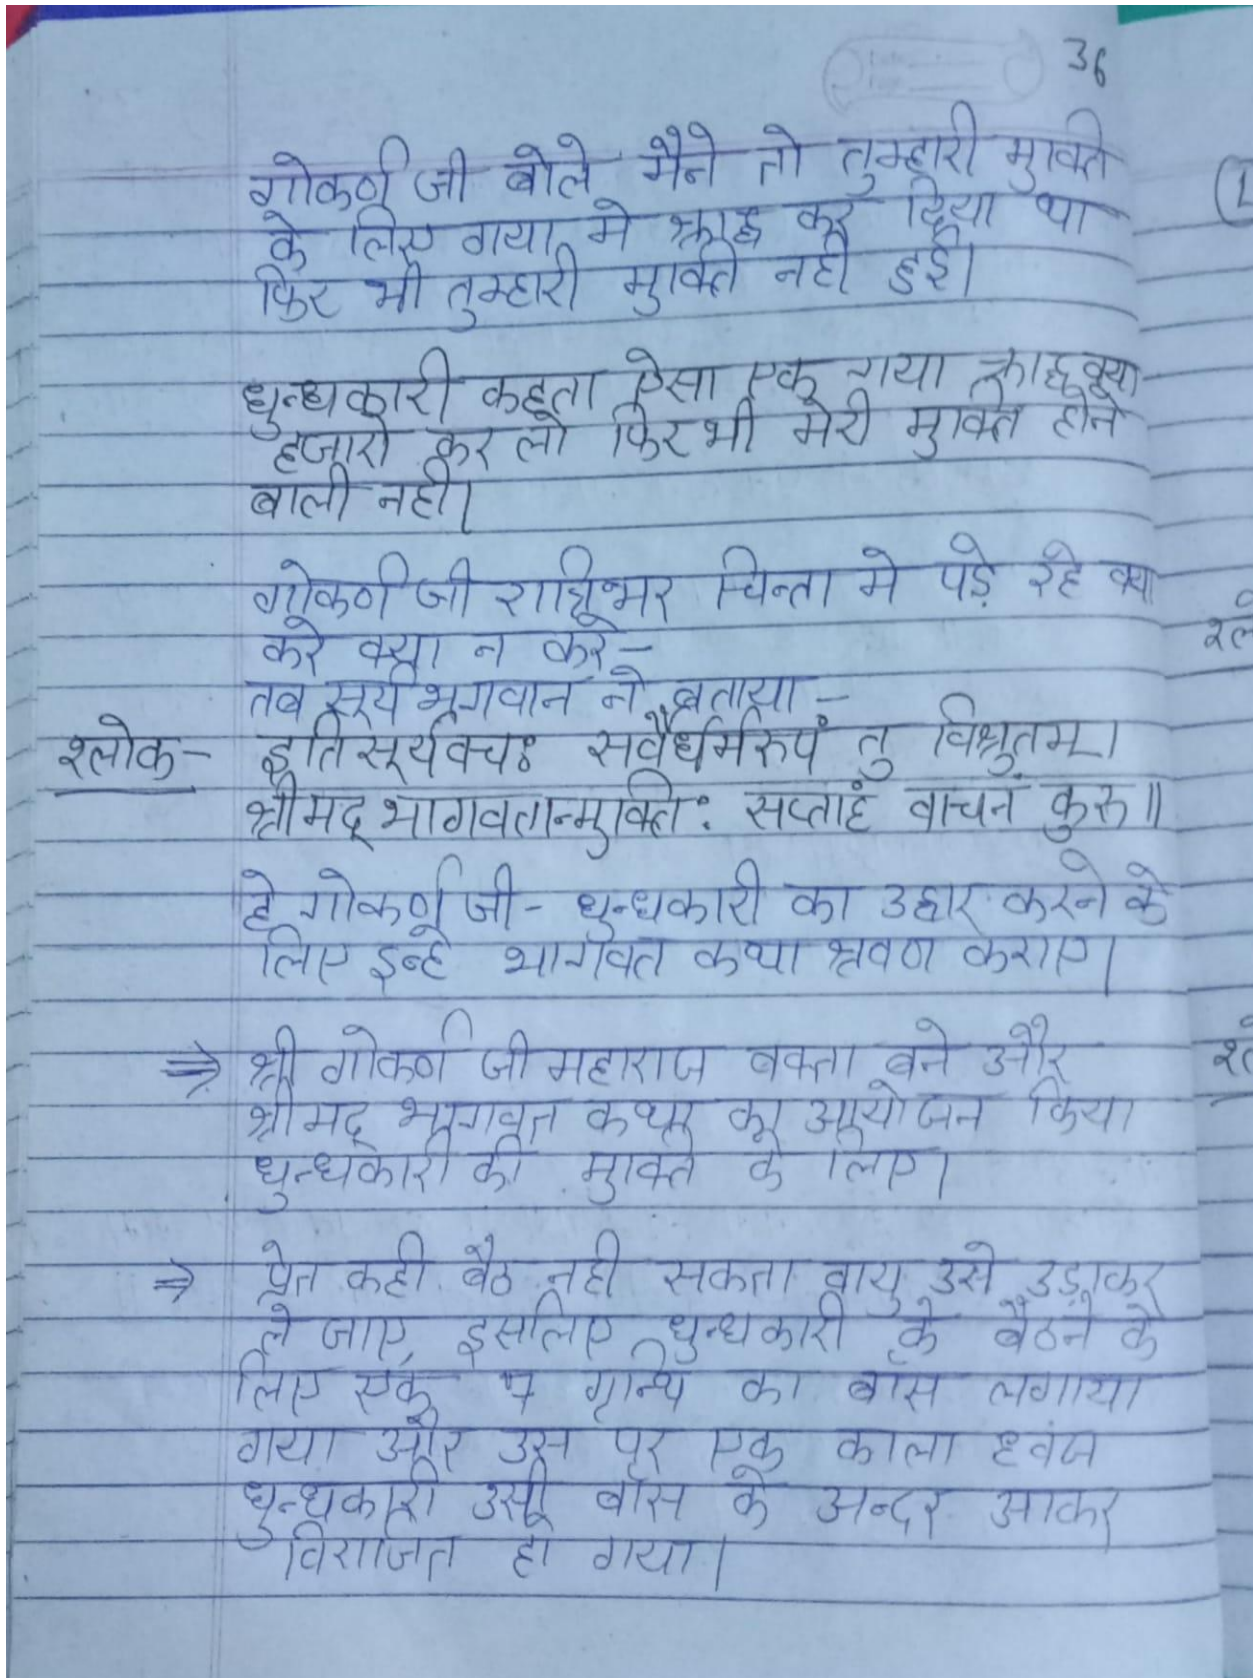 36
गोकर्ण जी बोले मैने तो तुम्हारी मुक्ति
के लिए गया मे श्राद्ध कर दिया था
फिर भी तुम्हारी मुक्ति नही हुई।
धुन्धकारी कहता ऐसा एक गया श्राद्ध क्या
हजारो कर लो फिर भी मेरी मुक्ति होने
बाली नही।
गोकर्ण जी रात्रिभर चिन्ता मे पड़े रहे क्या
करे क्या न करे-
तब सूर्य भगवान ने बताया-
श्लोक- इति सूर्यवचः सर्वैर्धर्मरुपं तु विश्रुतम्।
श्रीमद् भागवतान्मुक्ति: सप्ताहं वाचनं कुरु॥
हे गोकर्ण जी- धुन्धकारी का उद्धार करने के
लिए इन्हे भागवत कथा श्रवण कराए।
⇒ श्री गोकर्ण जी महाराज बक्ता बने और
श्रीमद् भागवत कथा का आयोजन किया
धुन्धकारी की मुक्ति के लिए।
⇒ प्रेत कही बैठ नही सकता वायु उसे उड़ाकर
ले जाए, इसलिए धुन्धकारी के बैठने के
लिए एक 7 ग्रन्थि का बास लगाया
गया और उस पर एक काला ध्वज
धुन्धकारी उसी बाँस के अन्दर आकर
विराजित हो गया।